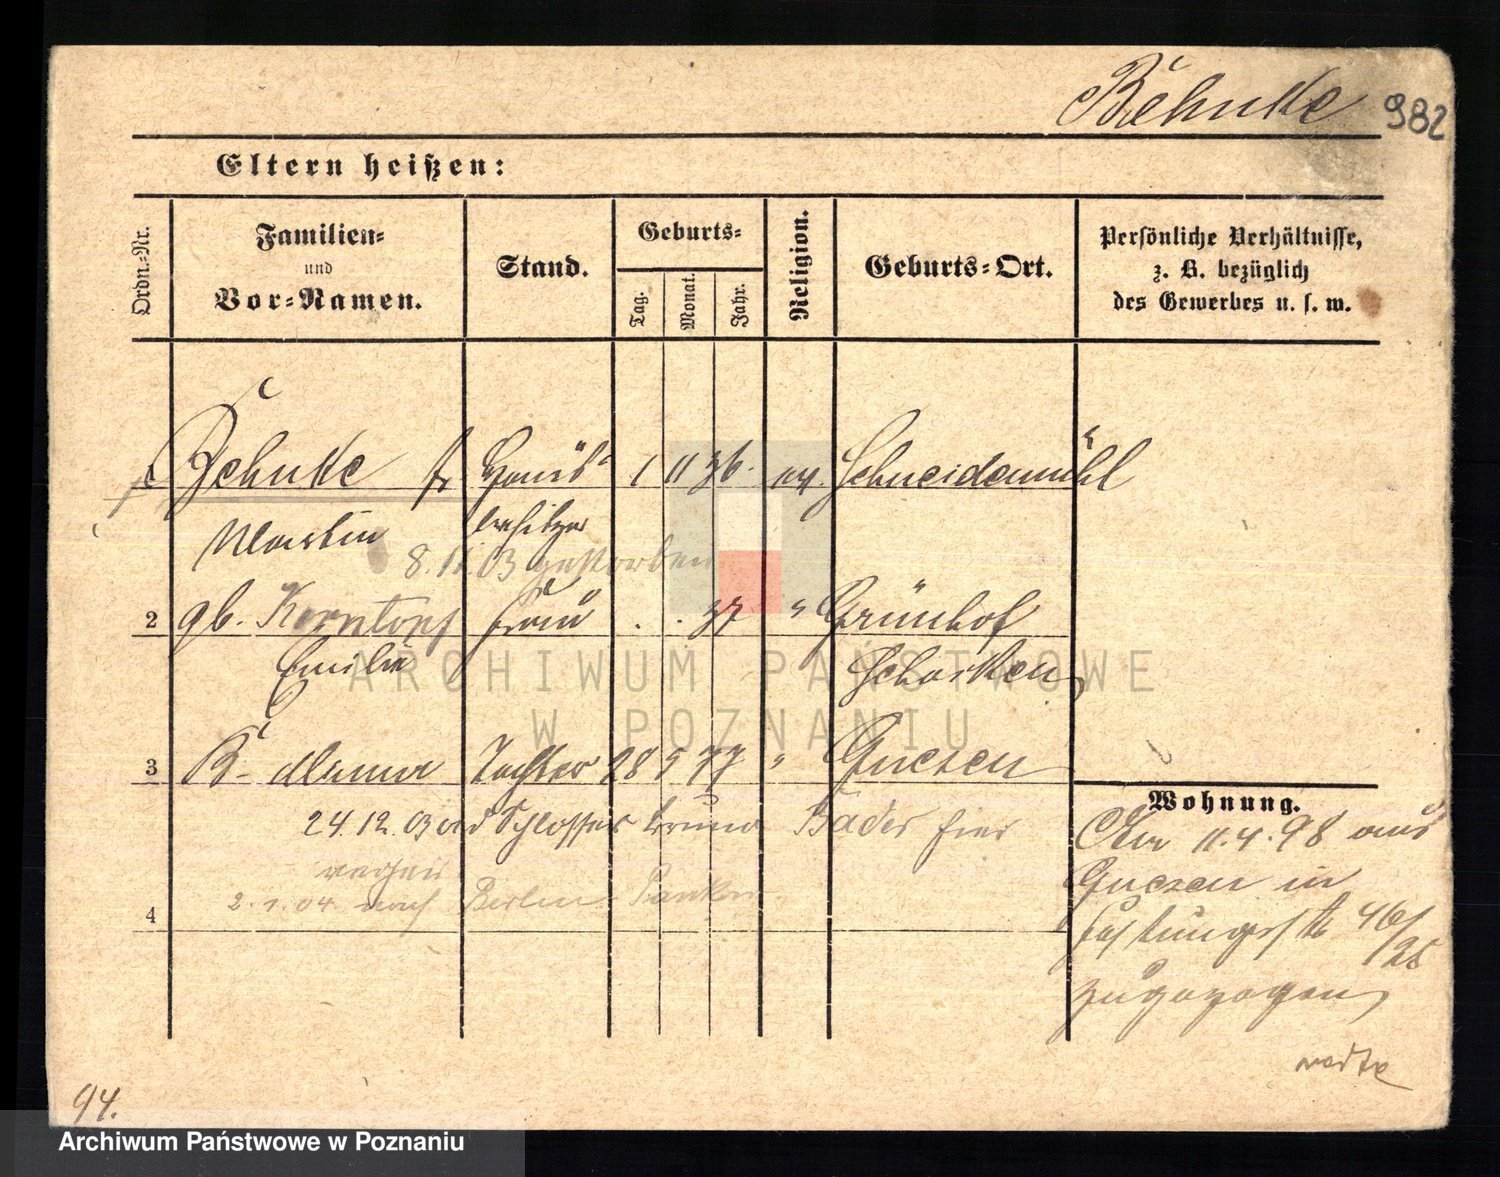 Behnke 982
Eltern heißen:
Ordn.-Nr.
Familien-
und
Vor-Namen.
Stand.
Geburts-
Tag.
Monat.
Jahr.
Religion.
Geburts-Ort.
Persönliche Verhältnisse,
z. B. bezüglich
des Gewerbes u. s. w.
Behnke Haus- 1 11 36. ev. Schneidemühl
Martin besitzer
8.11.03 gestorben
2 gb. Korntopf Frau . . 37 " Grünhof
Emilie Schocken
3 B- Anna Tochter 28 5 77 " Gnesen
24.12.03 Schlosser Bruno Bader hier
verheir
2.1.04 nach Berlin-Pankow
4
Wohnung.
11.4.98 aus
Gnesen in
46/
25
zugezogen
94.
ARCHIWUM PAŃSTWOWE
W POZNANIU
Archiwum Państwowe w Poznaniu